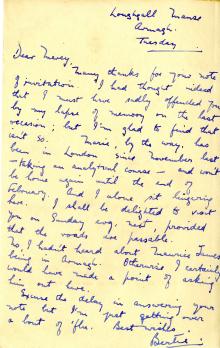 Loughgall Manse
Armagh.
Tuesday.
Dear Mercy,
Many thanks for your note
of invitation. I had thought indeed
that I must have sadly offended you
by my lapse of memory on the last
occasion; but I'm glad to find that
isn't so. Marie, by the way, has
been in London since November last
- taking an analytical course - and won't
be home again until the end of
February. And I alone sit lingering
here. I shall be delighted to visit
you on Sunday evg. next, provided
that the roads be passable.
No, I hadn't heard about Maurice James
being in Armagh. Otherwise I certainly
would have made a point of asking
him out here.
Excuse the delay in answering your
note but I'm just getting over
a bout of 'flu. Best wishes
Bertie